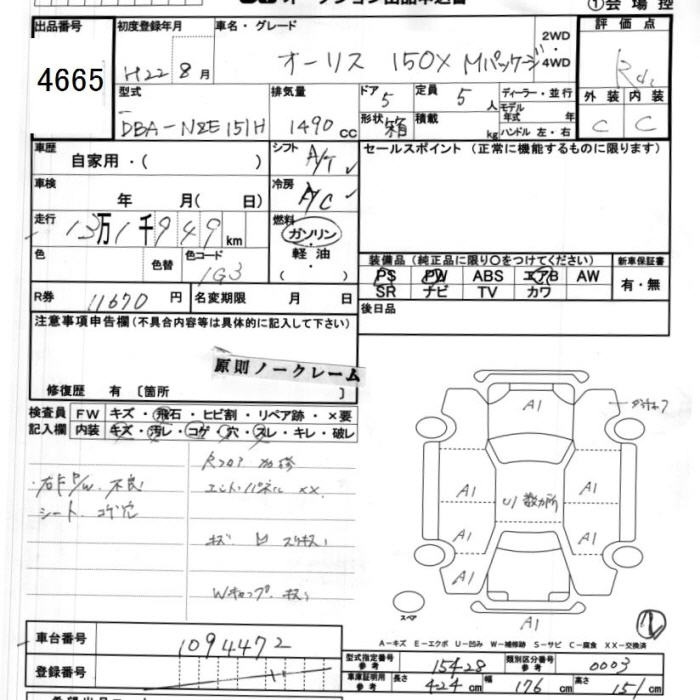 ①会場控
出品番号
4665
初度登録年月
H22 8月
車名・グレード
オーリス 150X Mパッケージ
2WD
4WD
評価点
外装 内装
C C
型式
DBA-NZE151H
排気量
1490 cc
ドア 5
定員 5 人
形状 箱
積載 kg
ディーラー・並行
モデル
年式 年
ハンドル 左・右
車歴
自家用・( )
シフト A/T
車検
年 月( 日)
冷房 A/C
走行
13万1千949 km
燃料
ガソリン・軽油・( )
色 色替 色コード
1G3
R券 11670 円
名変期限 月 日
セールスポイント(正常に機能するものに限ります)
装備品(純正品に限り〇をつけてください)
PS PW ABS エアB AW
SR ナビ TV カワ
新車保証書
有・無
後日品
注意事項申告欄(不具合内容等は具体的に記入して下さい)
原則ノークレーム
修復歴 有〔箇所 〕
検査員 FW キズ・飛石・ヒビ割・リペア跡・×要
記入欄 内装 キズ・汚レ・コゲ・穴・スレ・キレ・破レ
Rフロア 加修
右F P/W 不良
エンドパネル XX
シート コゲ穴
A1
A1 U1 数ヵ所 A1
A1 A1
A1
A1
スペア
A-キズ E-エクボ U-凹み W-補修跡 S-サビ C-腐食 XX-交換済
車台番号 1094472
登録番号
型式指定番号 参考 15428
類別区分番号 参考 0003
車庫証明用 参考 長さ 424 cm 幅 176 cm 高さ 151 cm